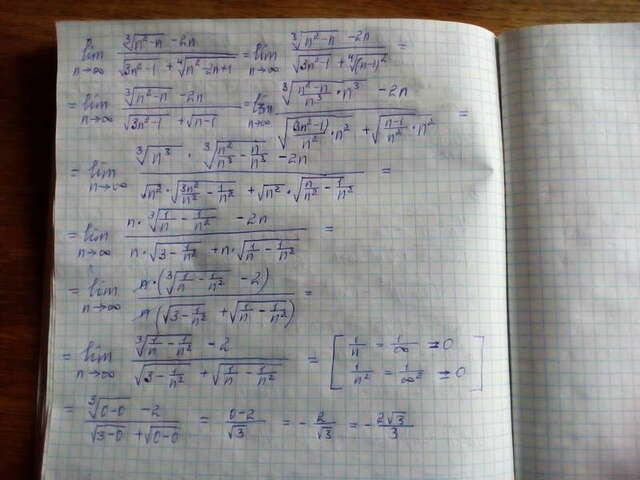 lim n→∞ (∛(n²-n) - 2n)/(√(3n²-1) + ∜(n²-2n+1)) = lim n→∞ (∛(n²-n) - 2n)/(√(3n²-1) + ∜((n-1)²)) =
= lim n→∞ (∛(n²-n) - 2n)/(√(3n²-1) + √(n-1)) = lim n→∞ (∛((n²-n)/n³ · n³) - 2n)/(√((3n²-1)/n² · n²) + √((n-1)/n² · n²)) =
= lim n→∞ (∛(n³) · ∛(n²/n³ - n/n³) - 2n)/(√(n²) · √(3n²/n² - 1/n²) + √(n²) · √(n/n² - 1/n²)) =
= lim n→∞ (n · ∛(1/n - 1/n²) - 2n)/(n √(3 - 1/n²) + n · √(1/n - 1/n²)) =
= lim n→∞ (n · (∛(1/n - 1/n²) - 2))/(n (√(3 - 1/n²) + √(1/n - 1/n²))) =
= lim n→∞ (∛(1/n - 1/n²) - 2)/(√(3 - 1/n²) + √(1/n - 1/n²)) = [1/n = 1/∞ = 0
1/n² = 1/∞² = 0]
= (∛(0-0) - 2)/(√(3-0) + √(0-0)) = (0-2)/√3 = - 2/√3 = - 2√3/3